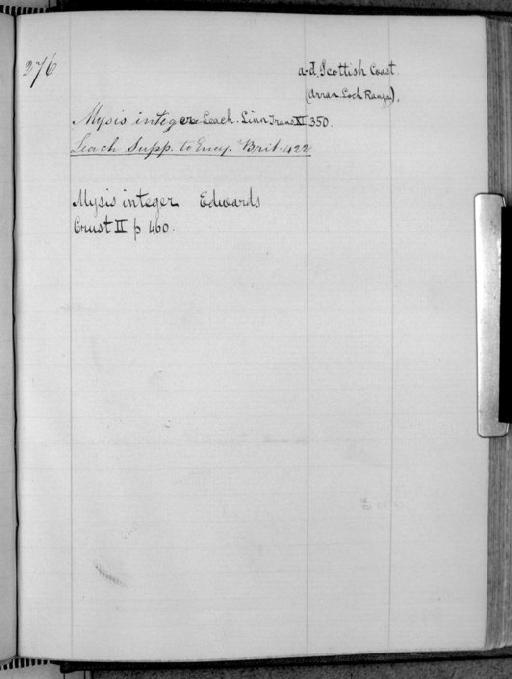 276
a-d. Scottish Coast
(Arran Loch Ranza).
Mysis integer Leach. Linn Trans XI 350.
Leach Supp. to Ency. Brit. 422
Mysis integer Edwards
Crust II p 460.